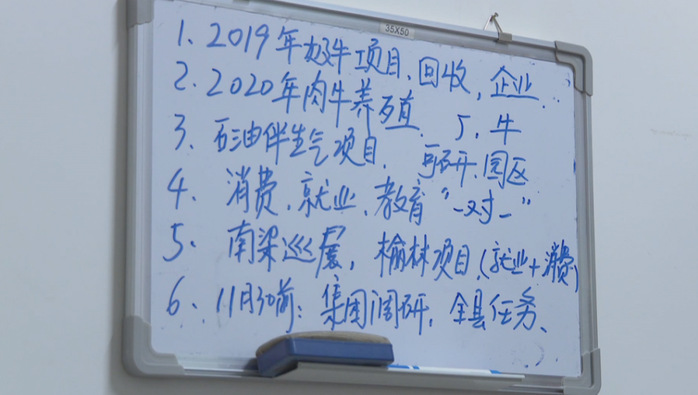 35X50
1. 2019年牛项目、回收，企业
2. 2020年肉牛养殖、5，牛
3. 石油伴生气项目、可研.园区
4. 消费、就业、教育“一对一”
5. 南梁巡展，榆林项目(就业+消费)
6. 11月30前：集团调研，全县任务、